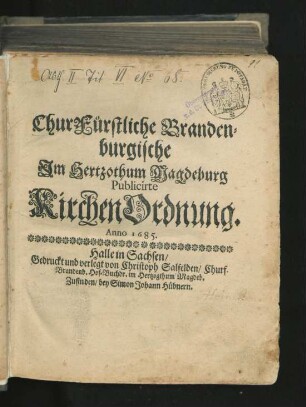 ChurFürstliche Branden-
burgische
Im Hertzothum Magdeburg
Publicirte
KirchenOrdnung.
Anno 1685.
Halle in Sachsen/
Gedruckt und verlegt von Christoph Salfelden/ Churf.
Brandenb. Hof-Buchdr. im Hertzogthum Magdeb.
Zufinden/ bey Simon Johann Hübnern.